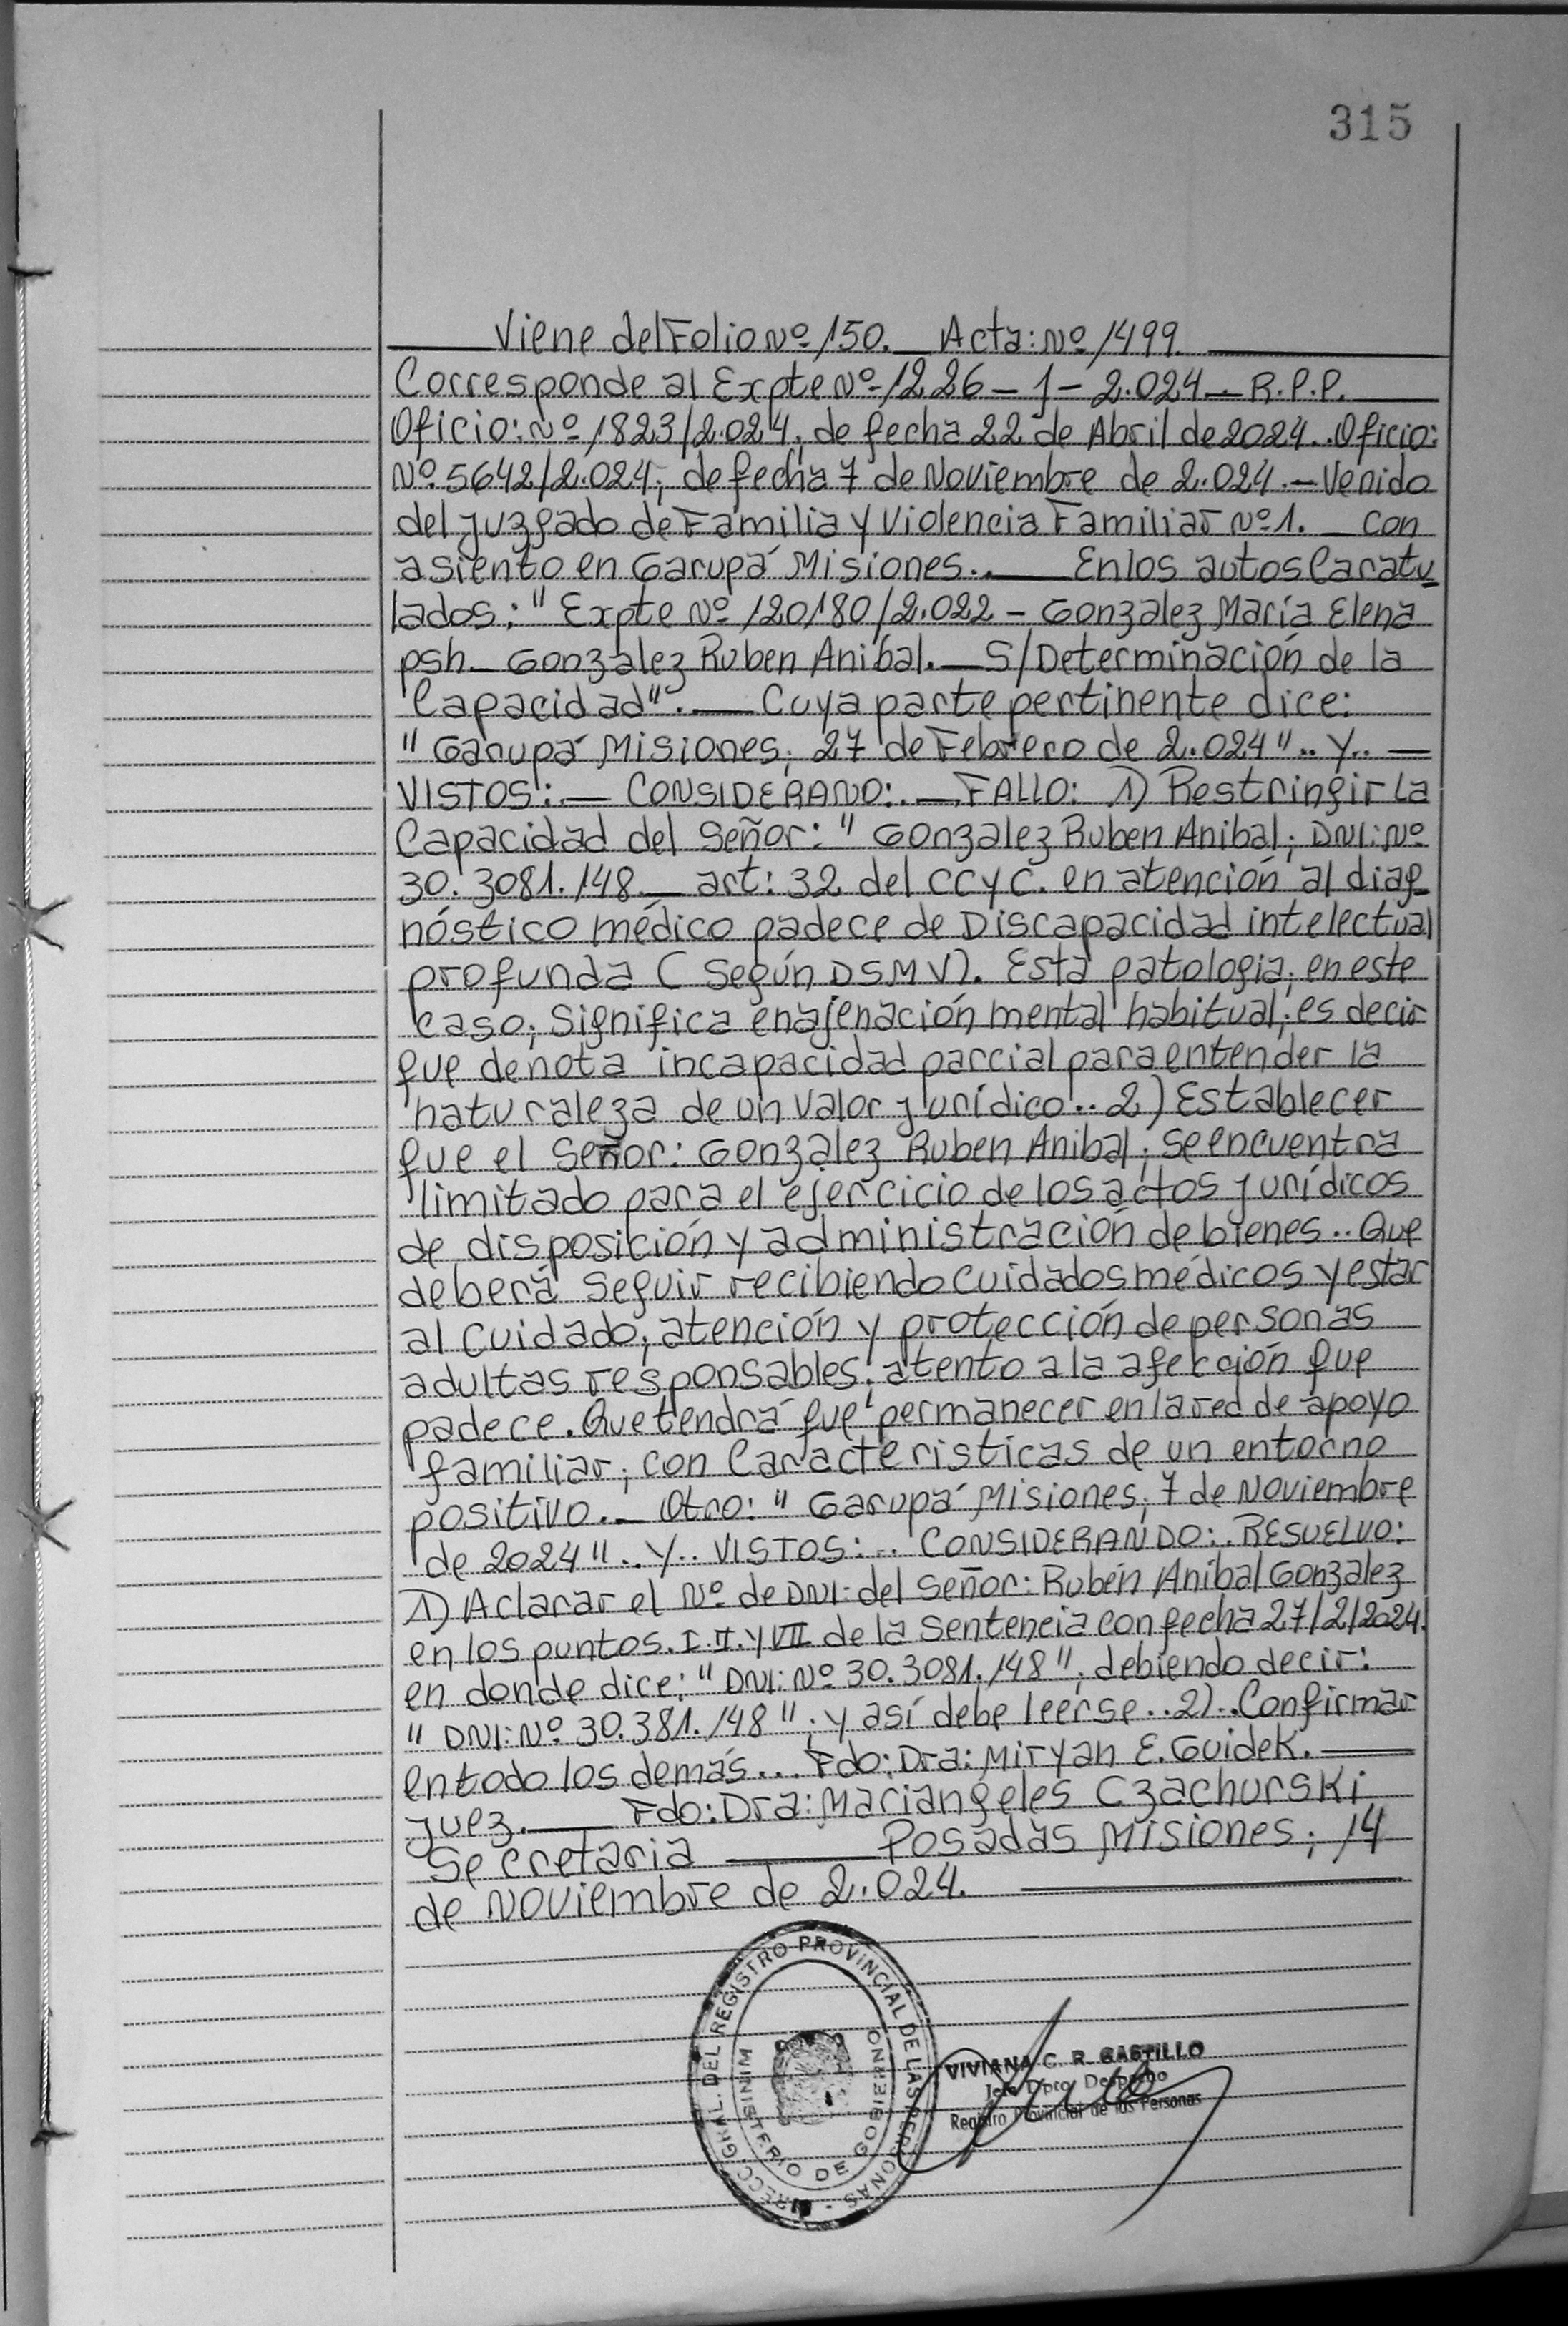 315
Viene del Folio Nº 150. Acta: Nº 1499.
Corresponde al Expte Nº 1226 - J - 2.024 - R.P.P.
Oficio: Nº 1823/2.024, de fecha 22 de Abril de 2024.. Oficio:
Nº 5642/2.024; de fecha 7 de Noviembre de 2.024.- Venido
del Juzgado de Familia y Violencia Familiar Nº 1. - con
asiento en Garupá Misiones. En los autos Caratu
lados: " Expte Nº 120180/2.022 - Gonzalez María Elena
psh - Gonzalez Ruben Anibal. - S/ Determinación de la
Capacidad". - Cuya parte pertinente dice:
" Garupá Misiones; 27 de Febrero de 2.024".. Y..
VISTOS: - CONSIDERANO: - FALLO: 1) Restringir La
Capacidad del Señor: " Gonzalez Ruben Anibal; DNI: Nº
30.3081.148 - art: 32 del CCyC. en atención al diag
nóstico médico padece de Discapacidad intelectual
profunda ( Según DSM V). Esta patologia; en este
caso; Significa enajenación mental habitual; es decir
que denota incapacidad parcial para entender la
naturaleza de un Valor jurídico.. 2) Establecer
que el Señor: Gonzalez Ruben Anibal; se encuentra
limitado para el ejercicio de los actos jurídicos
de disposición y administración de bienes.. Que
deberá Seguir recibiendo cuidados médicos y estar
al cuidado; atención y protección de personas
adultas responsables; atento a la afección que
padece. Que tendrá que permanecer en la red de apoyo
familiar; con Caracteristicas de un entorno
positivo. - Otro: " Garupá Misiones; 7 de Noviembre
de 2024".. Y.. VISTOS:.. CONSIDERANDO:. RESUELVO:
1) Aclarar el Nº de DNI: del Señor: Rubén Anibal Gonzalez
en los puntos. I. II. y VII de la Sentencia con fecha 27/2/2024.
en donde dice: " DNI: Nº 30.3081.148"; debiendo decir:
" DNI: Nº 30.381.148"; y así debe leerse.. 2).. Confirmar
en todo los demás... Fdo: Dra: Miryan E. Guidek.
Juez. Fdo: Dra: Mariangeles Czachurski
Secretaria Posadas Misiones; 14
de Noviembre de 2.024.
DIRECC. GRAL. DEL REGISTRO PROVINCIAL DE LAS PERSONAS
MINISTERIO DE GOBIERNO
VIVIANA C. R. CASTILLO
Jefe Dpto. Despacho
Registro Provincial de las Personas